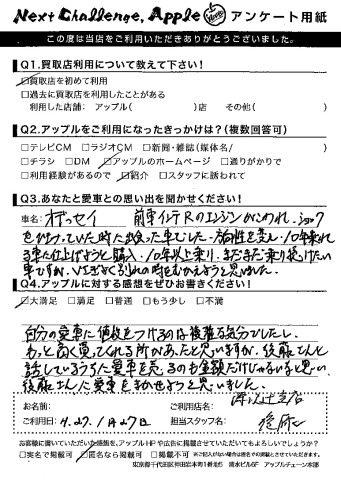 Next Challenge, Apple アンケート用紙
この度は当店をご利用いただきありがとうございました。
Q1.買取店利用について教えて下さい!
☑買取店を初めて利用
□過去に買取店を利用したことがある
利用した店舗: アップル( )店 その他( )
Q2.アップルをご利用になったきっかけは?(複数回答可)
□テレビCM □ラジオCM □新聞・雑誌(媒体名/ )
□チラシ □DM ☑アップルのホームページ □通りがかりで
□利用経験があるので ☑紹介 □スタッフに誘われて
Q3.あなたと愛車との思い出をお聞かせください!
車名: オデッセイ 前車インテRのエンジンがこわれ、ショック
をひきずっていた時に出会った車でした。方向性を変え、10年乗れ
る車に仕上げようと購入。10年以上乗り、まだまだ乗り続けたい
車ですが、いさぎよく別れの時をむかえようと思いました。
Q4.アップルに対する感想をぜひお書きください!
☑大満足 □満足 □普通 □もう少し □不満
自分の愛車に値段をつけるのは複雑な気分でしたし、
もっと高く買ってくれる所があったと思いますが、後藤さんと
話しているうちに愛車を売るのも金額だけじゃないなと思い、
後藤さんに愛車をまかせようと思いました。
お名前: ご利用店名: 店
ご利用日: H.27.1月27日 担当スタッフ名: 後藤
お客様に書いていただいた感想を、アップルHPや広告に掲載させていただいてもよろしいでしょうか?
□実名で掲載可 ☑匿名なら掲載可 □掲載不可 ※ご記入がない場合は匿名での掲載とさせていただきます。
東京都千代田区神田岩本町1番地5 清水ビル6F アップルチェーン本部